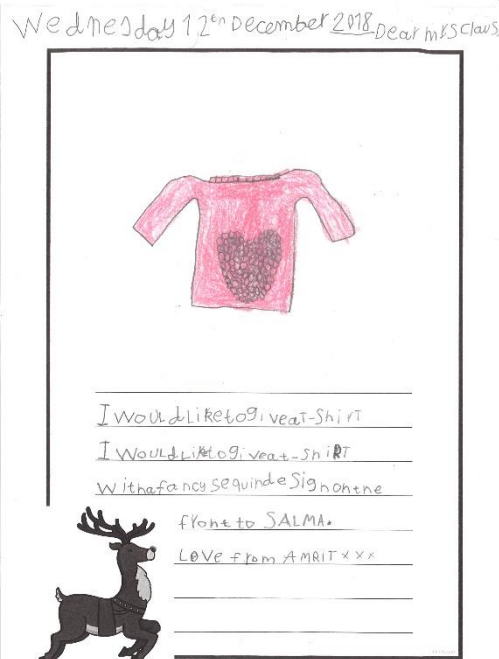 Wednesday 12th December 2018 Dear mrs Claus,
I would like to give a T-Shirt
I would Like to give a t-ShiRT
with a fancy sequin deSign on the
front to SALMA.
LOVE from AMRIT x x x